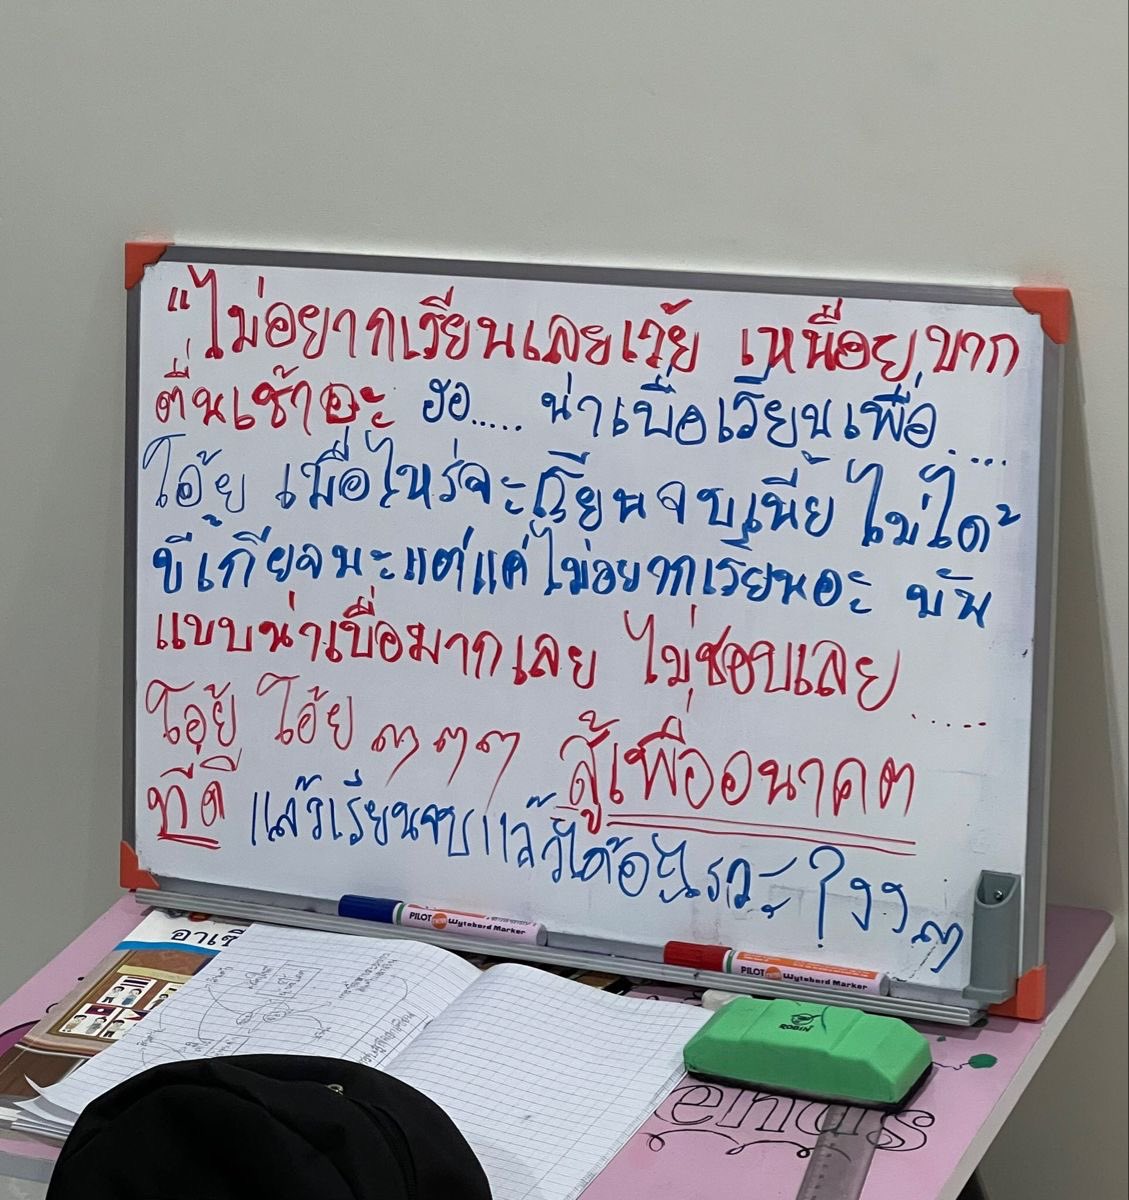 "ไม่อยากเรียนเลยเว้ย เหนื่อยขาก
ตื่นเช้าอะ ฮอ..... น่าเบื่อเรียนเพื่อ....
โอ้ย เมื่อไหร่จะเรียนจบเนี้ย ไม่ได้
ขี้เกียจนะแต่แค่ไม่อยากเรียนอะ มัน
แบบน่าเบื่อมากเลย ไม่ชอบเลย ......
โอ้ย โอ้ย ๆ ๆ ๆ สู้เพื่ออนาคต
ที่ดี แล้วเรียนจบแล้วได้อะไรวะ ?งงๆ
PILOT Wytebord Marker
PILOT Wytebord Marker
อาเซี
ROBIN